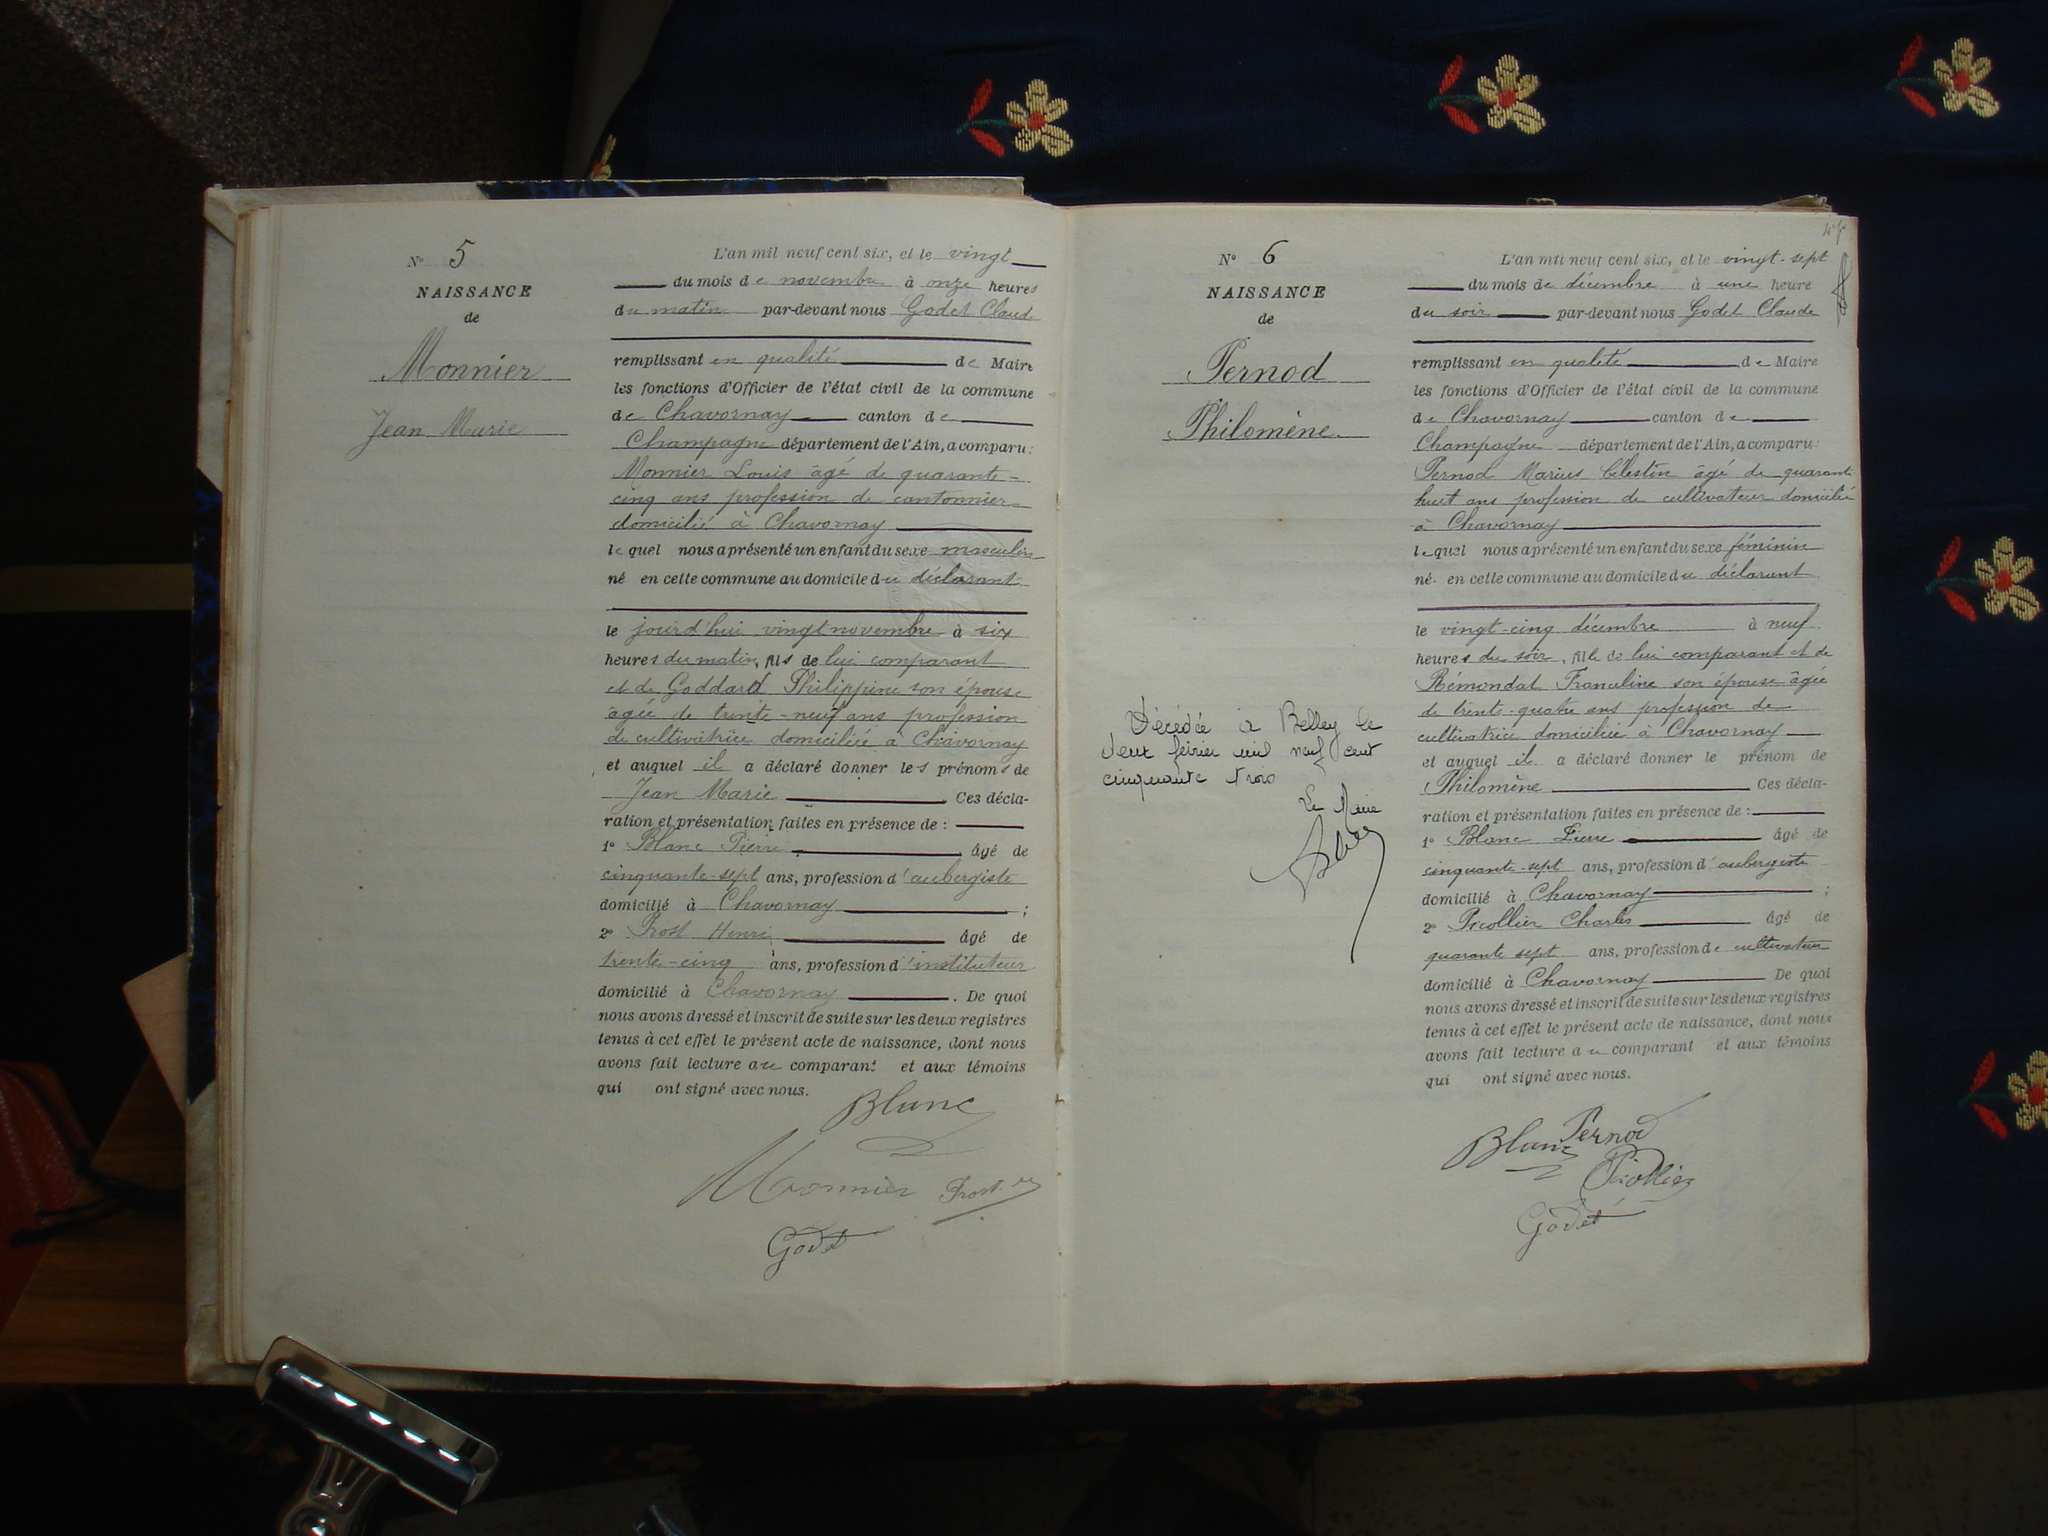 N° 5
NAISSANCE
de
Monnier
Jean Marie
L'an mil neuf cent six, et le vingt
du mois de novembre à onze heures
du matin par-devant nous Godet Claude
remplissant en qualité de Maire
les fonctions d'Officier de l'état civil de la commune
de Chavornay canton de
Champagne département de l'Ain, a comparu:
Monnier Louis âgé de quarante-
cinq ans profession de cantonnier
domicilié à Chavornay
lequel nous a présenté un enfant du sexe masculin
né en cette commune au domicile du déclarant
le jourd'hui vingt novembre à six
heures du matin, fils de lui comparant
et de Goddard Philippine son épouse
âgée de trente-neuf ans profession
de cultivatrice domiciliée à Chavornay
et auquel il a déclaré donner les prénoms de
Jean Marie . Ces décla-
ration et présentation faites en présence de :
1° Blanc Pierre âgé de
cinquante-sept ans, profession d'aubergiste
domicilié à Chavornay ;
2° Prost Henri âgé de
trente-cinq ans, profession d'instituteur
domicilié à Chavornay . De quoi
nous avons dressé et inscrit de suite sur les deux registres
tenus à cet effet le présent acte de naissance, dont nous
avons fait lecture au comparant et aux témoins
qui ont signé avec nous.
Blanc
Monnier Prost
Godet
N° 6
NAISSANCE
de
Pernod
Philomène
Décédée à Belley le
deux février mil neuf cent
cinquante trois
Le Maire
L'an mil neuf cent six, et le vingt-sept
du mois de décembre à une heure
du soir par-devant nous Godet Claude
remplissant en qualité de Maire
les fonctions d'Officier de l'état civil de la commune
de Chavornay canton de
Champagne département de l'Ain, a comparu:
Pernod Marius Célestin âgé de quarante
huit ans profession de cultivateur domicilié
à Chavornay
lequel nous a présenté un enfant du sexe féminin
né en cette commune au domicile du déclarant
le vingt-cinq décembre à neuf
heures du soir, fille de lui comparant et de
Rémondat Francline son épouse âgée
de trente-quatre ans profession de
cultivatrice domiciliée à Chavornay
et auquel il a déclaré donner le prénom de
Philomène Ces décla-
ration et présentation faites en présence de :
1° Blanc Pierre âgé de
cinquante-sept ans, profession d'aubergiste
domicilié à Chavornay ;
2° Picollier Charles âgé de
quarante sept ans, profession de cultivateur
domicilié à Chavornay De quoi
nous avons dressé et inscrit de suite sur les deux registres
tenus à cet effet le présent acte de naissance, dont nous
avons fait lecture au comparant et aux témoins
qui ont signé avec nous.
Blanc Pernod
Picollier
Godet